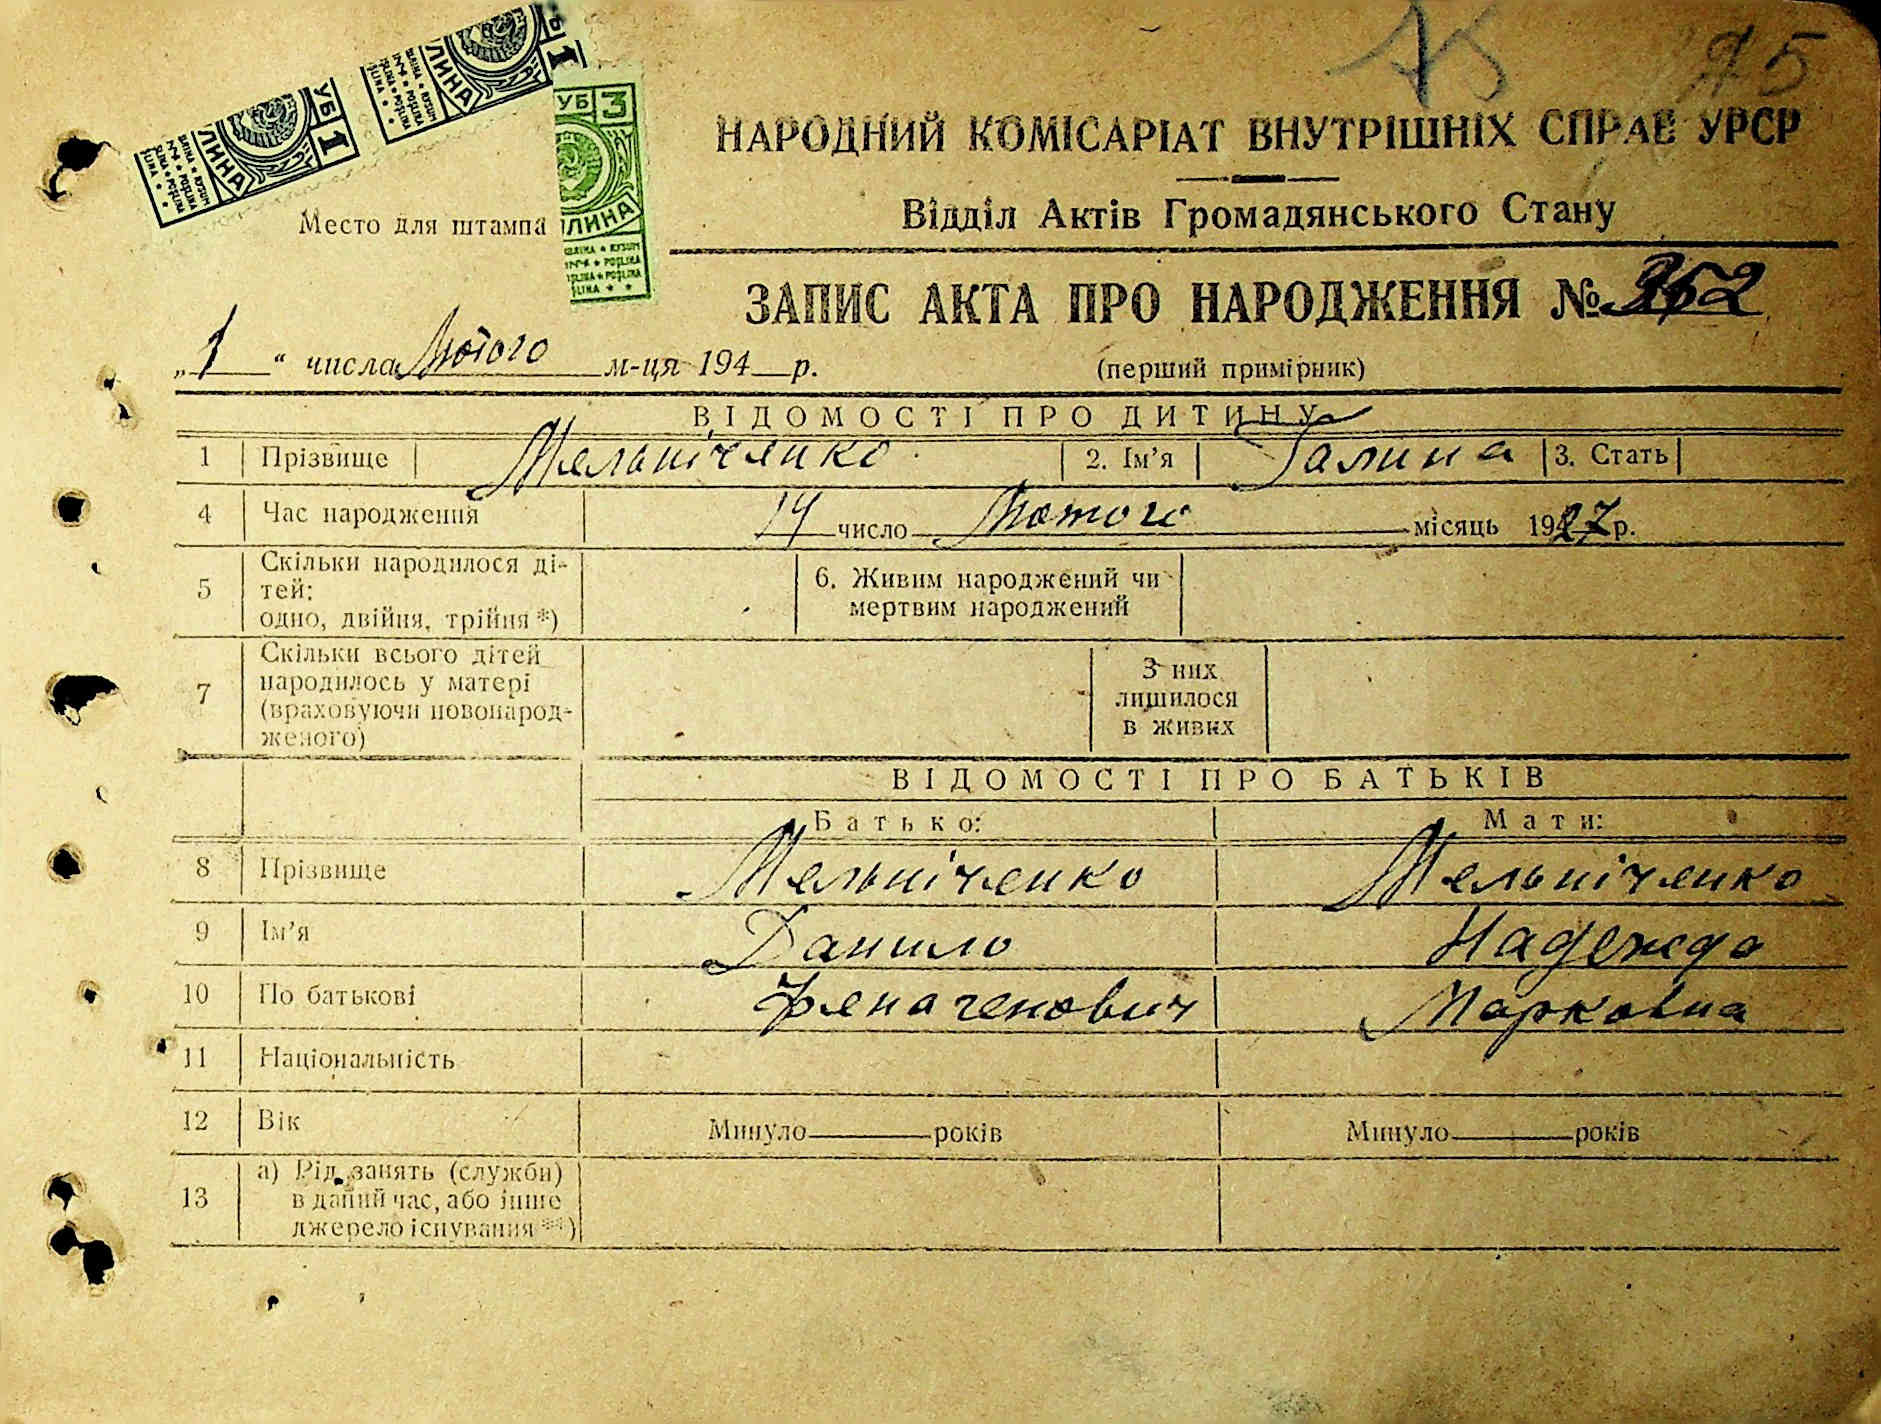 А5
А5
УБ 1
ЛИНА
УБ 1
ЛИНА
УБ 3
ЛИНА
НАРОДНИЙ КОМІСАРІАТ ВНУТРІШНІХ СПРАВ УРСР
Відділ Актів Громадянського Стану
Место для штампа
ЗАПИС АКТА ПРО НАРОДЖЕННЯ №
„ 1 “ числа Лютого м-ця 194 р.
(перший примірник)
ВІДОМОСТІ ПРО ДИТИНУ
1 Прізвище Мельніченко 2. Ім’я Галина 3. Стать
4 Час народження 14 число Лютого місяць 1927 р.
5 Скільки народилося ді-
тей:
одно, двійня, трійня *)
6. Живим народжений чи
мертвим народжений
7 Скільки всього дітей
народилось у матері
(враховуючи новонарод-
женого)
З них
лишилося
в живих
ВІДОМОСТІ ПРО БАТЬКІВ
Батько: Мати:
8 Прізвище Мельніченко Мельніченко
9 Ім’я Данило Надежда
10 По батькові Марковна
11 Національність
12 Вік Минуло року Минуло років
13 а) Рід занять (служби)
в даний час, або інше
джерело існування **)